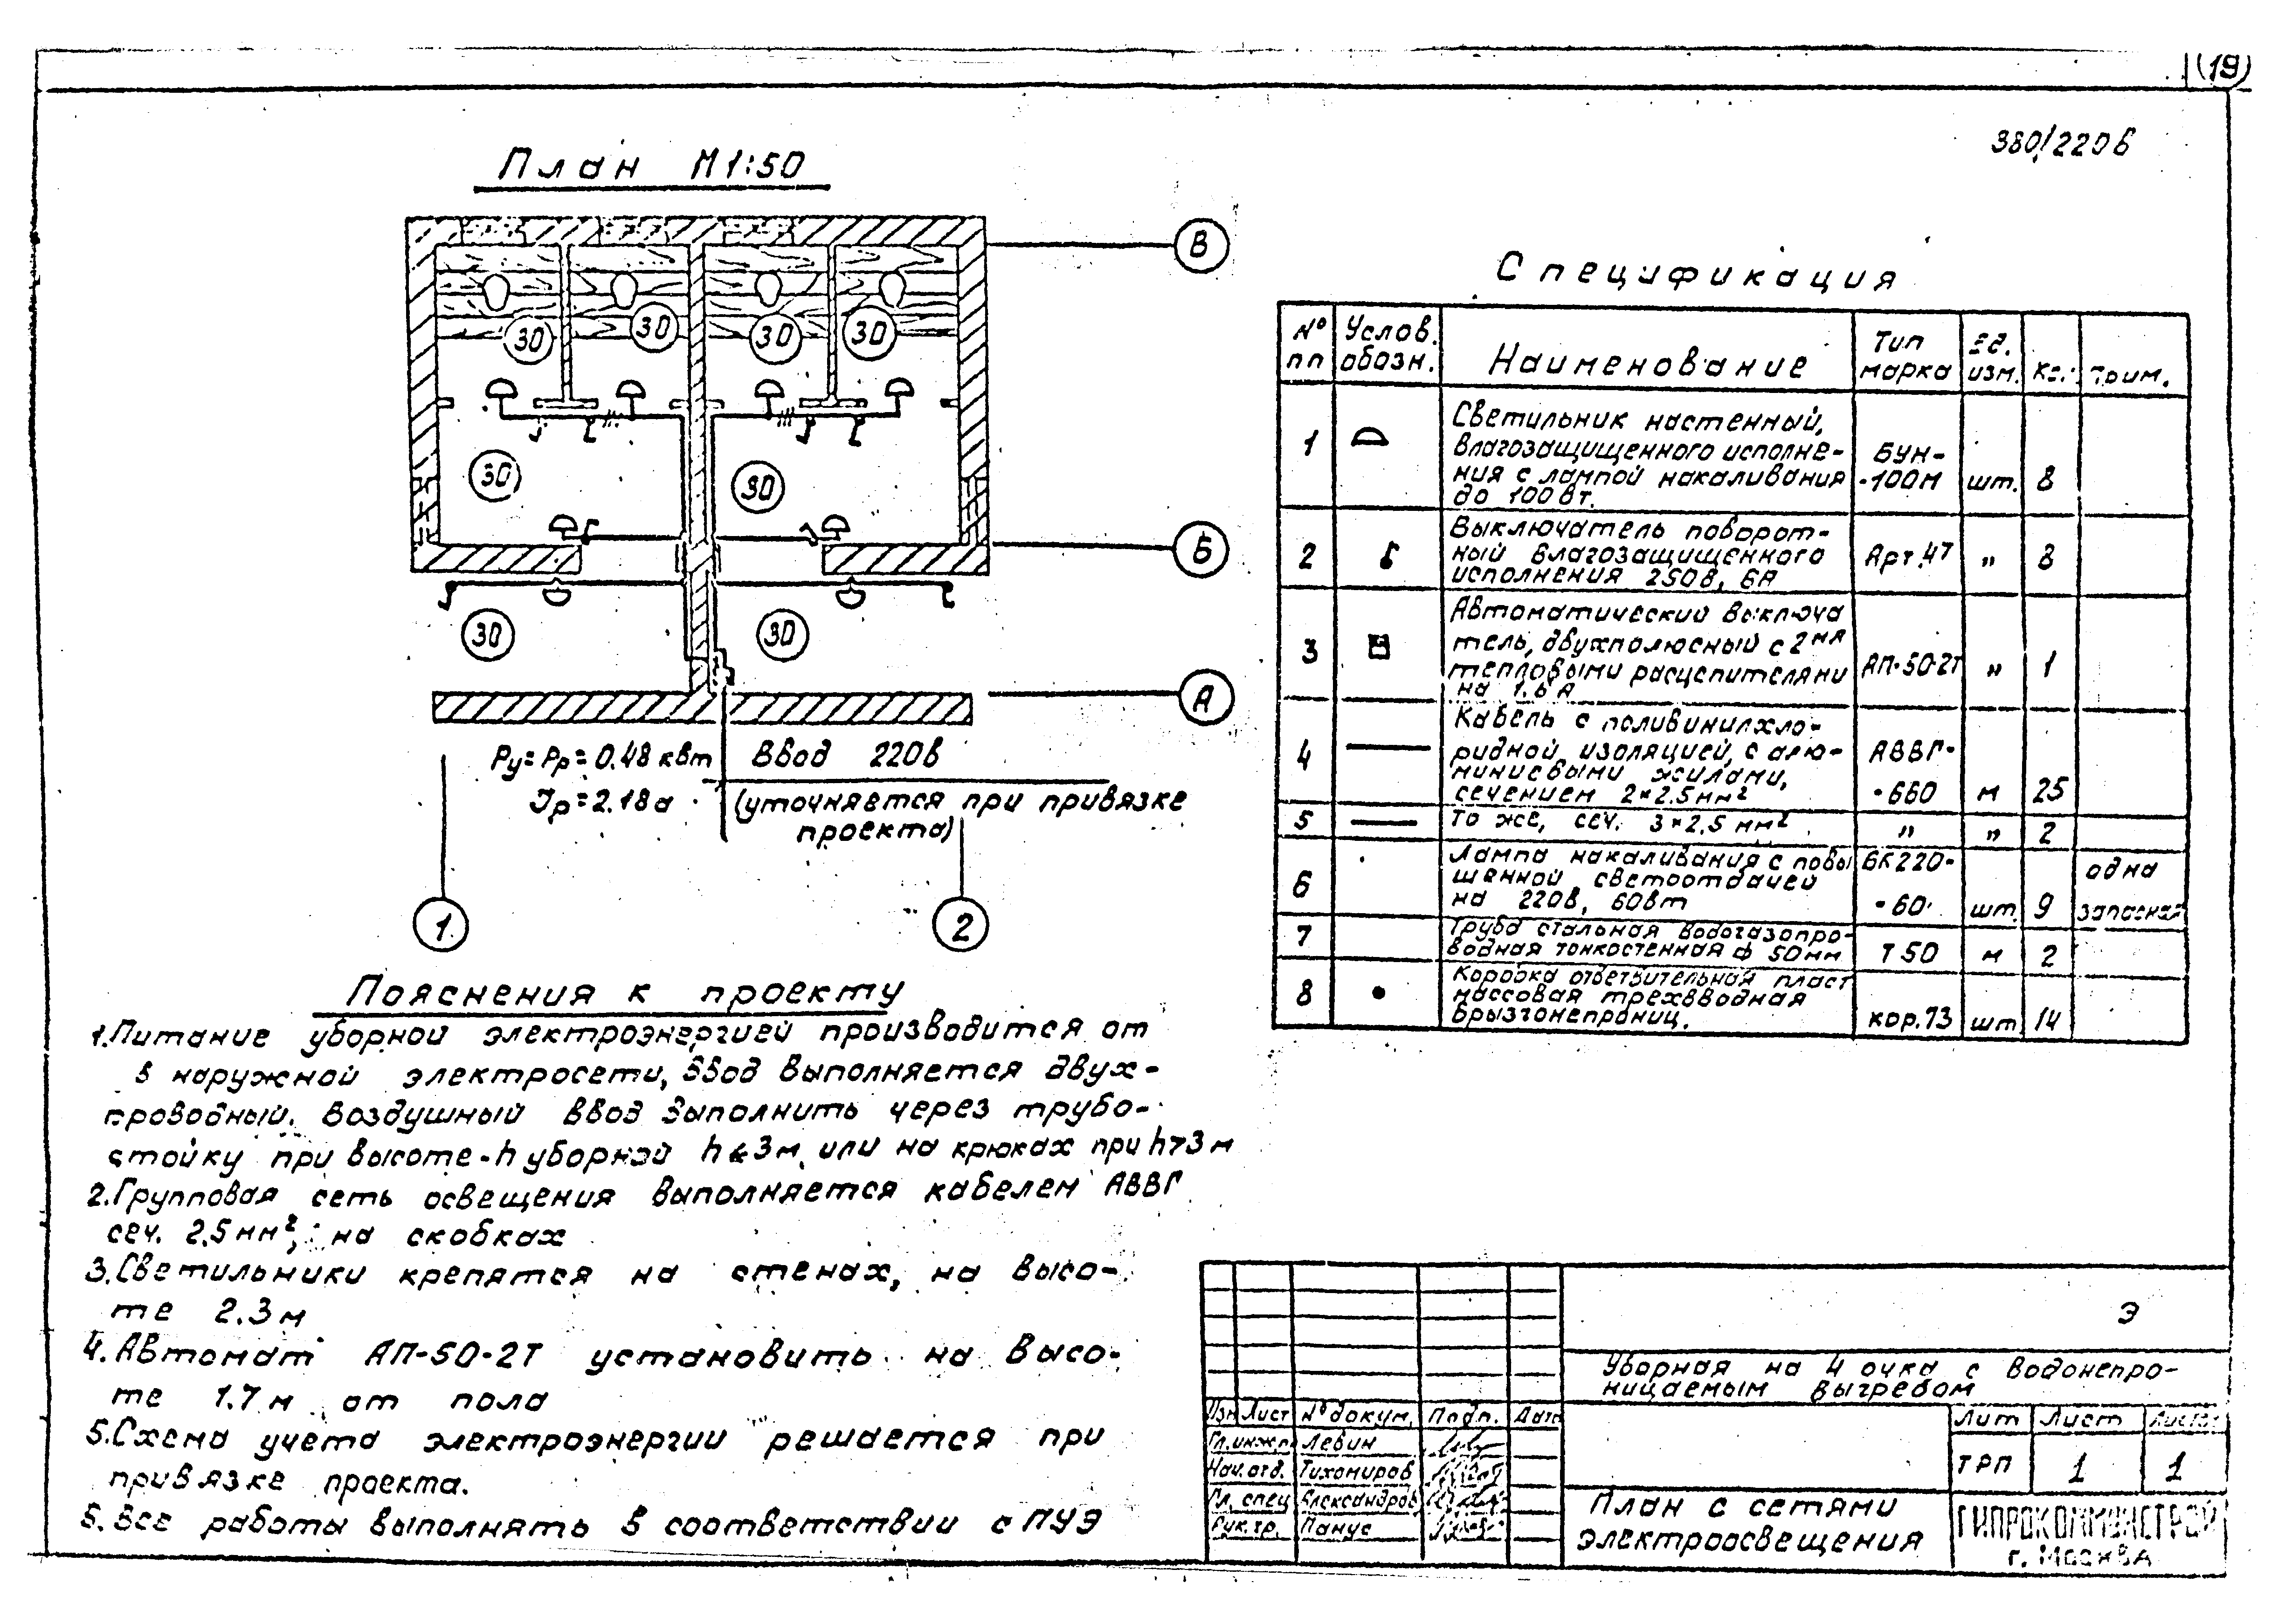 (19)
380/220в
План М1:50
В
30 30 30 30
30 30
Б
30 30
А
Pу=Pр=0.48квт Ввод 220в
Iр=2.18а (уточняется при привязке
проекта)
1 2
Пояснения к проекту
1. Питание уборной электроэнергией производится от
в наружной электросети, ввод выполняется двух-
проводный. Воздушный ввод выполнить через трубо-
стойку при высоте-h уборной h<3м или на крюках при h>3м
2. Групповая сеть освещения выполняется кабелем АВВГ
сеч. 2.5мм², на скобках
3. Светильники крепятся на стенах, на высо-
те 2.3м
4. Автомат АП-50-2Т установить на высо-
те 1.7м от пола
5. Схема учета электроэнергии решается при
привязке проекта.
6. Все работы выполнять в соответствии с ПУЭ
Спецификация
№ пп Услов. обозн. Наименование Тип марка Ед. изм. Кол. Прим.
1 Светильник настенный,
влагозащищенного исполне-
ния с лампой накаливания
до 100вт. БУН-
-100М шт. 8
2 Выключатель поворот-
ный влагозащищенного
исполнения 250в, 6А Арт.47 " 8
3 Автоматический выключа
тель, двухполюсный с 2мя
тепловыми расцепителями
на 1.6А АП-50-2Т " 1
4 Кабель с поливинилхло-
ридной изоляцией, с алю-
миниевыми жилами,
сечением 2×2.5мм² АВВГ-
-660 м 25
5 То же, сеч. 3×2.5мм² " " 2
6 Лампа накаливания с повы
шенной светоотдачей
на 220в, 60вт БК220-
-60 шт. 9 одна
запасная
7 Труба стальная водогазопро-
водная тонкостенная ф 50мм Т50 м 2
8 Коробка ответвительная пласт
массовая трехвводная
брызгонепрониц. кор.73 шт 14
Э
Уборная на 4 очка с водонепро-
ницаемым выгребом
Изм Лист № докум. Подп. Дата
Гл.инж.п Левин
Нач.отд. Тихомиров
Гл. спец Александров
Рук.гр. Панус
Лит Лист Листов
ТРП 1 1
План с сетями
электроосвещения
ГИПРОКОММУНСТРОЙ
г. Москва